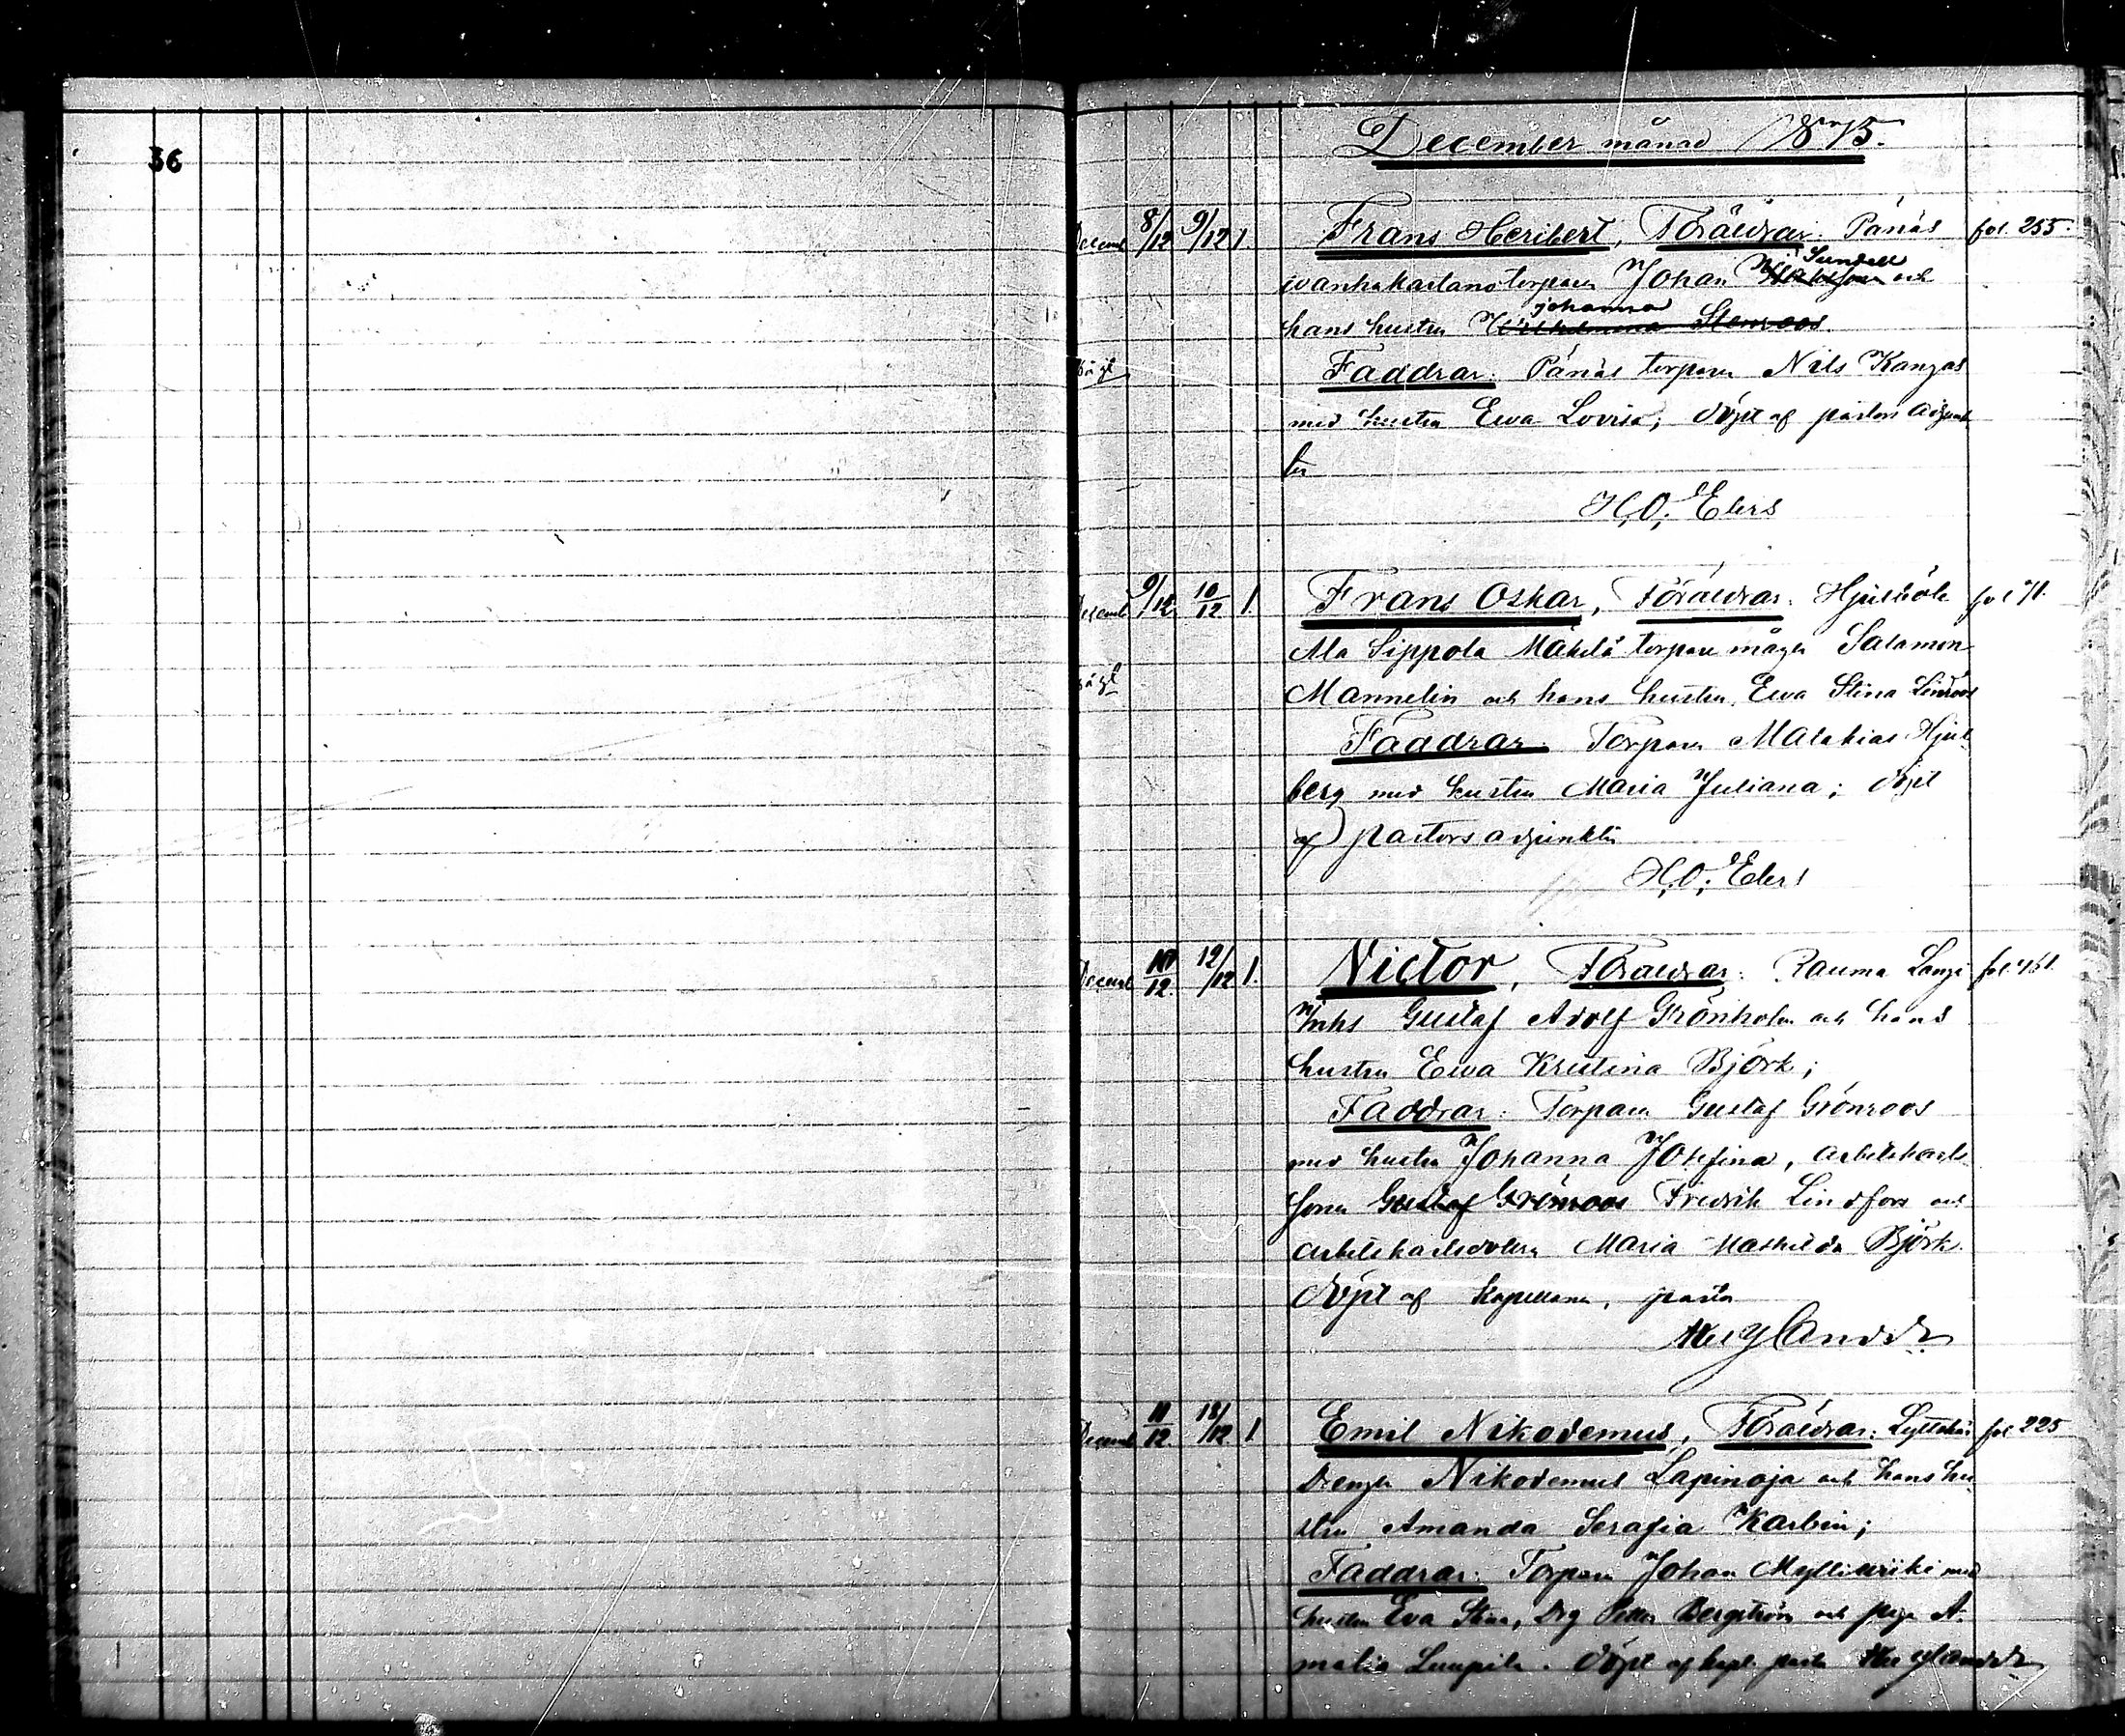 36
December månad 1875.
Decemb 8/12 9/12 1. Frans Heribert, Föräldrar: Panas fol. 255.
wanhakartano torparen Johan Sundell och
hans hustru Johanna Wilhelmina Stenroos.
Faddrar: Panas torparen Nils Kangas
med hustru Ewa Lovisa; döpt af pastors adjunk
ten
H. O. Elers
Decemb 9/12 10/12 1. Frans Oskar, Föräldrar: Hjulböle fol 71.
Ala Sippola Mäkelä torpare mågen Salamon
Mannelin och hans hustru, Ewa Stina Lindroos
Faddrar: Torparen Malakias Hjul
berg med hustru Maria Juliana; döpt
af pastors adjunkten
H. O. Elers
Decemb 10/12. 12/12 1. Victor, Föräldrar: Rauma Lang
Inhs Gustaf Adolf Grönholm och hans
hustru Ewa Kristina Björk;
Faddrar: Torparen Gustaf Grönroos
med hustru Johanna Josefina, arbetskarls
sonen Gustaf Grönroos Fredrik Lindfors och
arbetskarlsdottern Maria Mathilda Björk.
Döpt af Kapellanen, pastor
Heurlander
Decemb 11/12. 18/12 1 Emil Nikodemus, Föräldrar: Lyttskär fol 225
Drengen Nikodemus Lapinoja och hans hu
stru Amanda Serafia Karbin;
Faddrar: Torparen Johan Myllimäki med
hustru Eva Stina, Drg Petter Bergström och pigan A
malia Luupila. Döpt af kapl. pastor